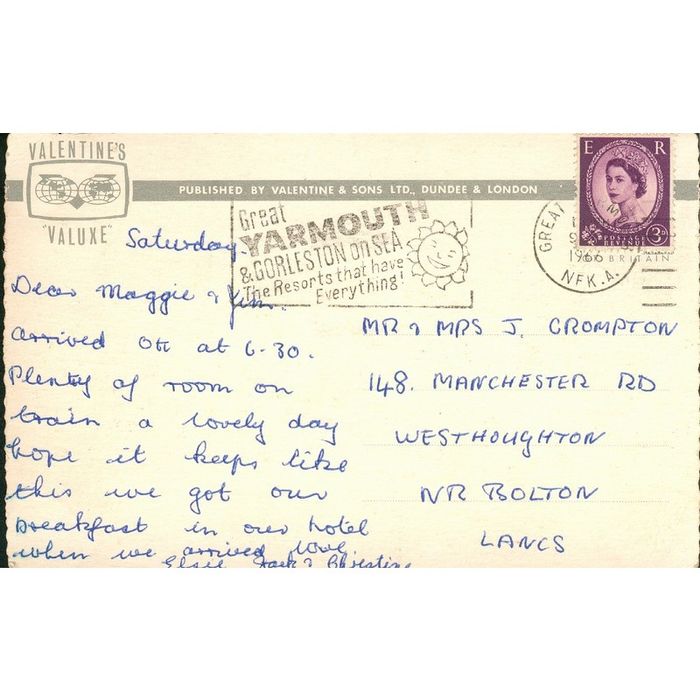 VALENTINE'S
"VALUXE"
PUBLISHED BY VALENTINE & SONS LTD., DUNDEE & LONDON
E R
POSTAGE
REVENUE
3D
GREAT
1966
NFK.A.
BRITAIN
Great
YARMOUTH
& GORLESTON on SEA
The Resorts that have
Everything!
Saturday.
Dear Maggie & Jim.
arrived OK at 6-30.
Plenty of room on
train a lovely day
hope it keeps like
this we got our
breakfast in our hotel
when we arrived love
Elsie Jack & Christine
MR & MRS J. CROMPTON
148. MANCHESTER RD
WESTHOUGHTON
NR BOLTON
LANCS